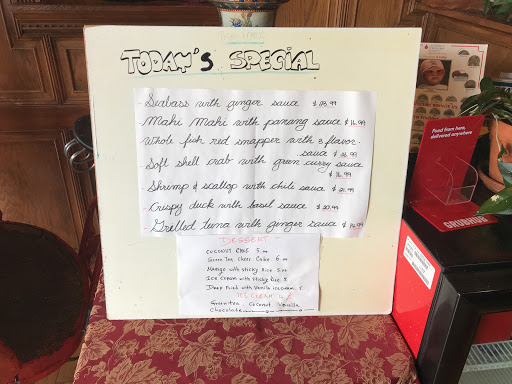 TODAY'S SPECIAL
- Seabass with ginger sauce $23.99
Mahi Mahi with panang sauce $16.99
Whole fish red snapper with 3 flavor
sauce $26.99
Soft shell crab with green curry sauce
$16.99
- Shrimp & scallop with chili sauce $21.99
- Crispy duck with basil sauce $20.99
- Grilled tuna with ginger sauce $16.99
DESSERT
COCONUT CAKE 5.00
Green Tea Cheese Cake 6.00
Mango with sticky Rice 5.00
Ice cream with sticky Rice 5
Deep Fried with Vanilla icecream 5
ICE CREAM
Greentea, Coconut, Vanilla
Chocolate
Food from here,
delivered anywhere
GRUBHUB